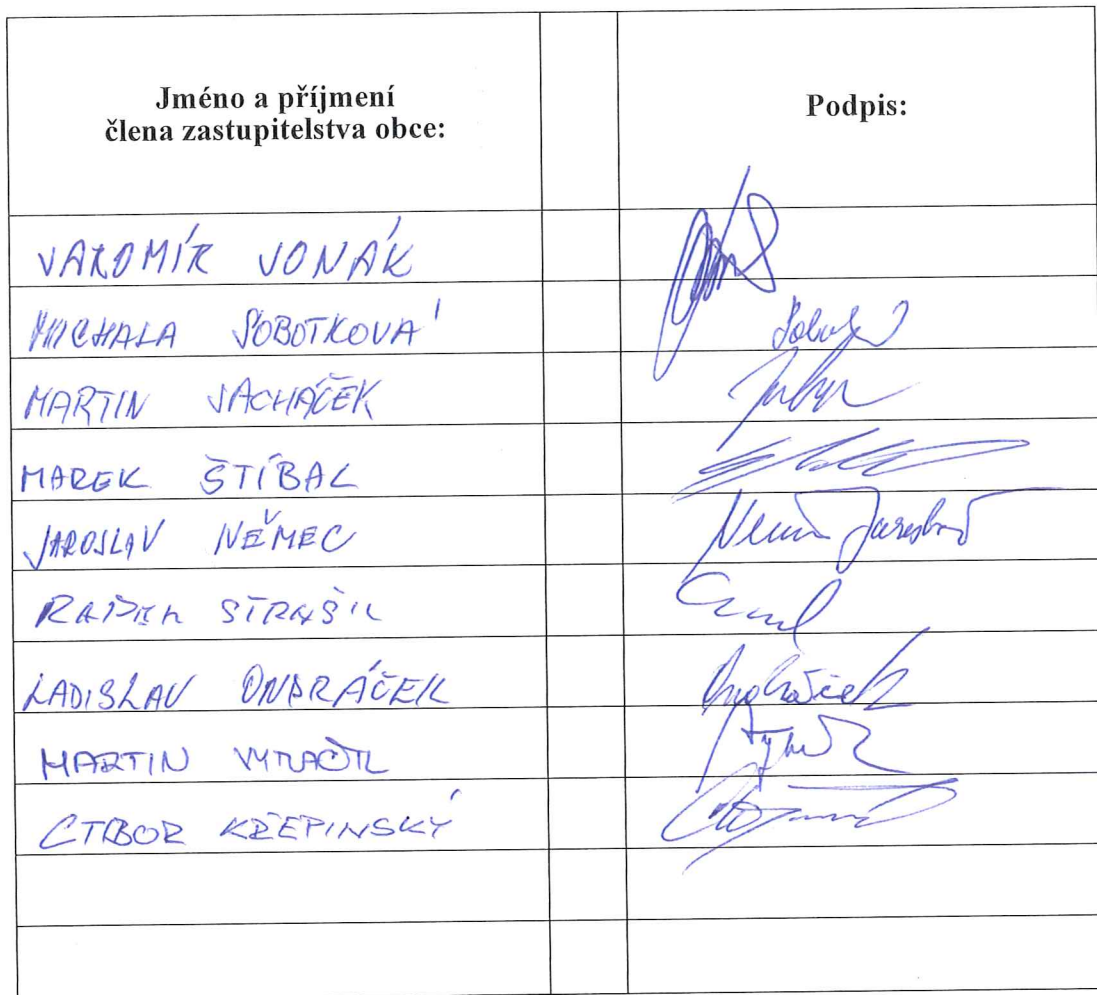 Jméno a příjmení
člena zastupitelstva obce:
Podpis:
JAROMÍR JONÁK
MICHALA SOBOTKOVÁ
MARTIN JACHÁČEK
MAREK ŠTÍBAL
JAROSLAV NĚMEC
RADEK STRAŠIL
LADISLAV ONDRÁČEK Ondráček
MARTIN VYTLAČIL
CTIBOR KŘEPINSKÝ